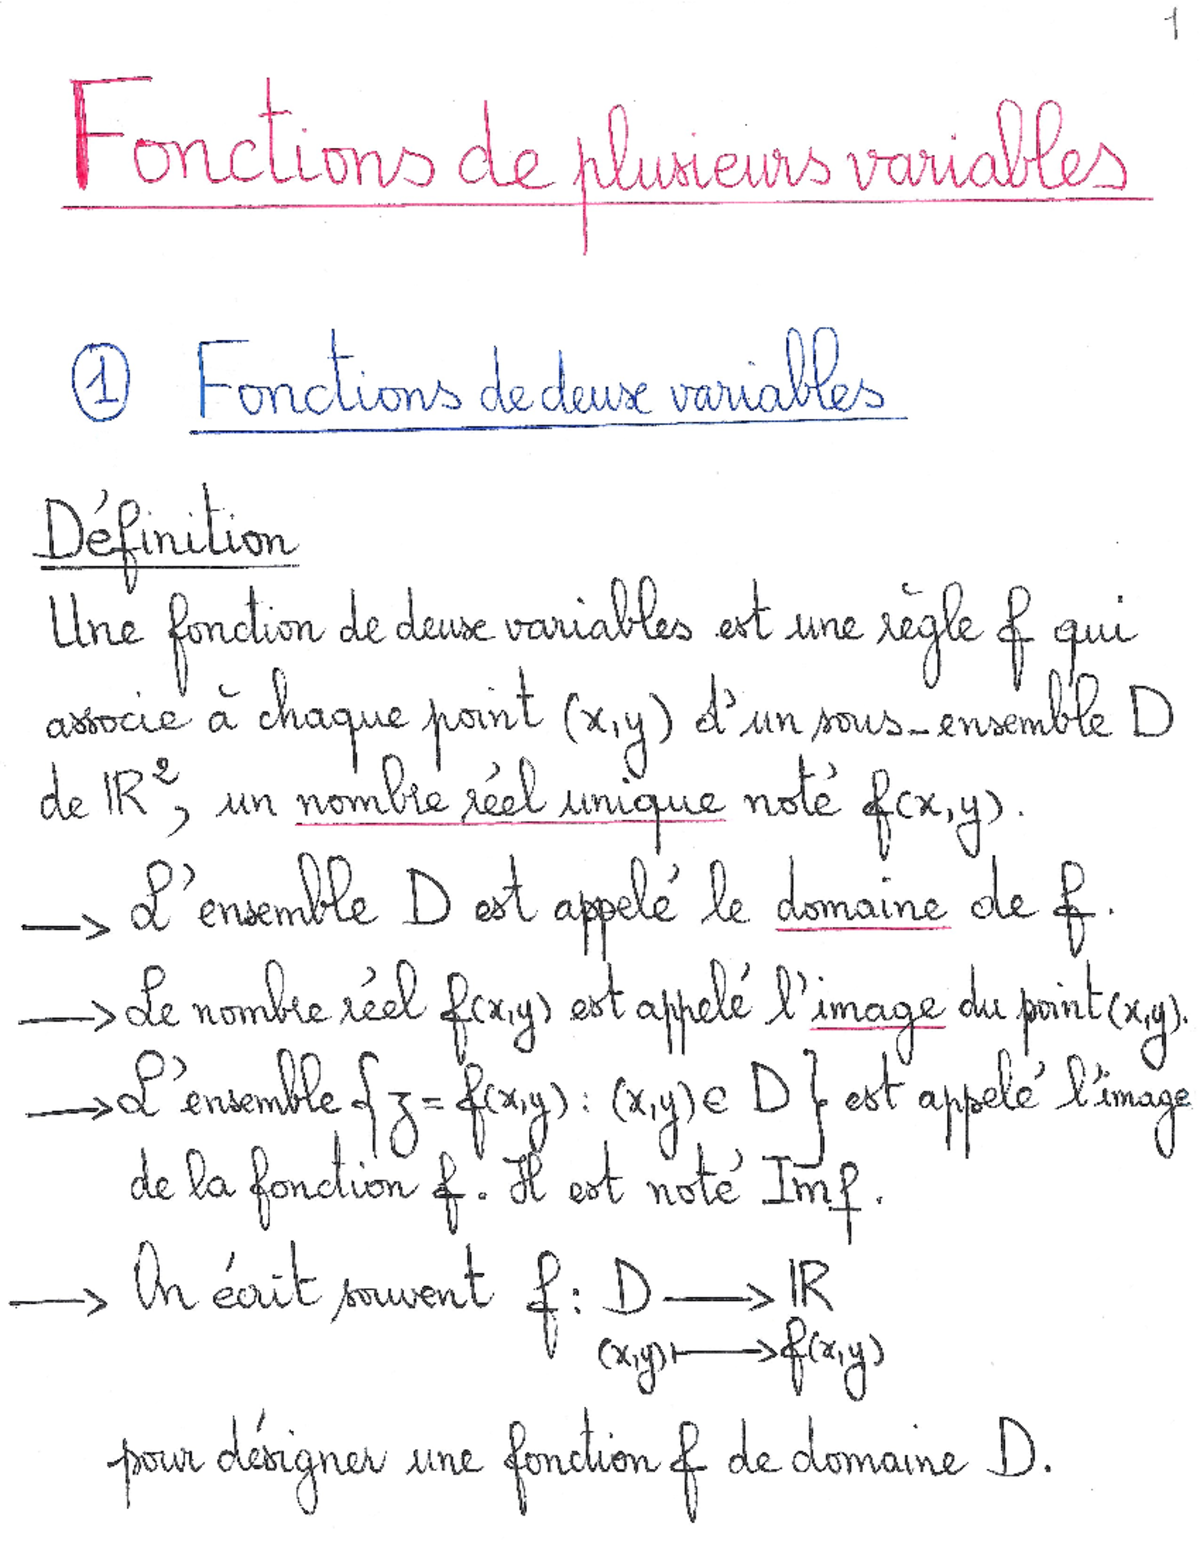 1
Fonctions de plusieurs variables
① Fonctions de deux variables
Définition
Une fonction de deux variables est une règle f qui
associe à chaque point (x,y) d'un sous-ensemble D
de ℝ², un nombre réel unique noté f(x,y).
→ L'ensemble D est appelé le domaine de f.
→ Le nombre réel f(x,y) est appelé l'image du point (x,y).
→ L'ensemble {z = f(x,y) : (x,y) ∈ D} est appelé l'image
de la fonction f. Il est noté Imf.
→ On écrit souvent f : D → ℝ
(x,y) ↦ f(x,y)
pour désigner une fonction f de domaine D.